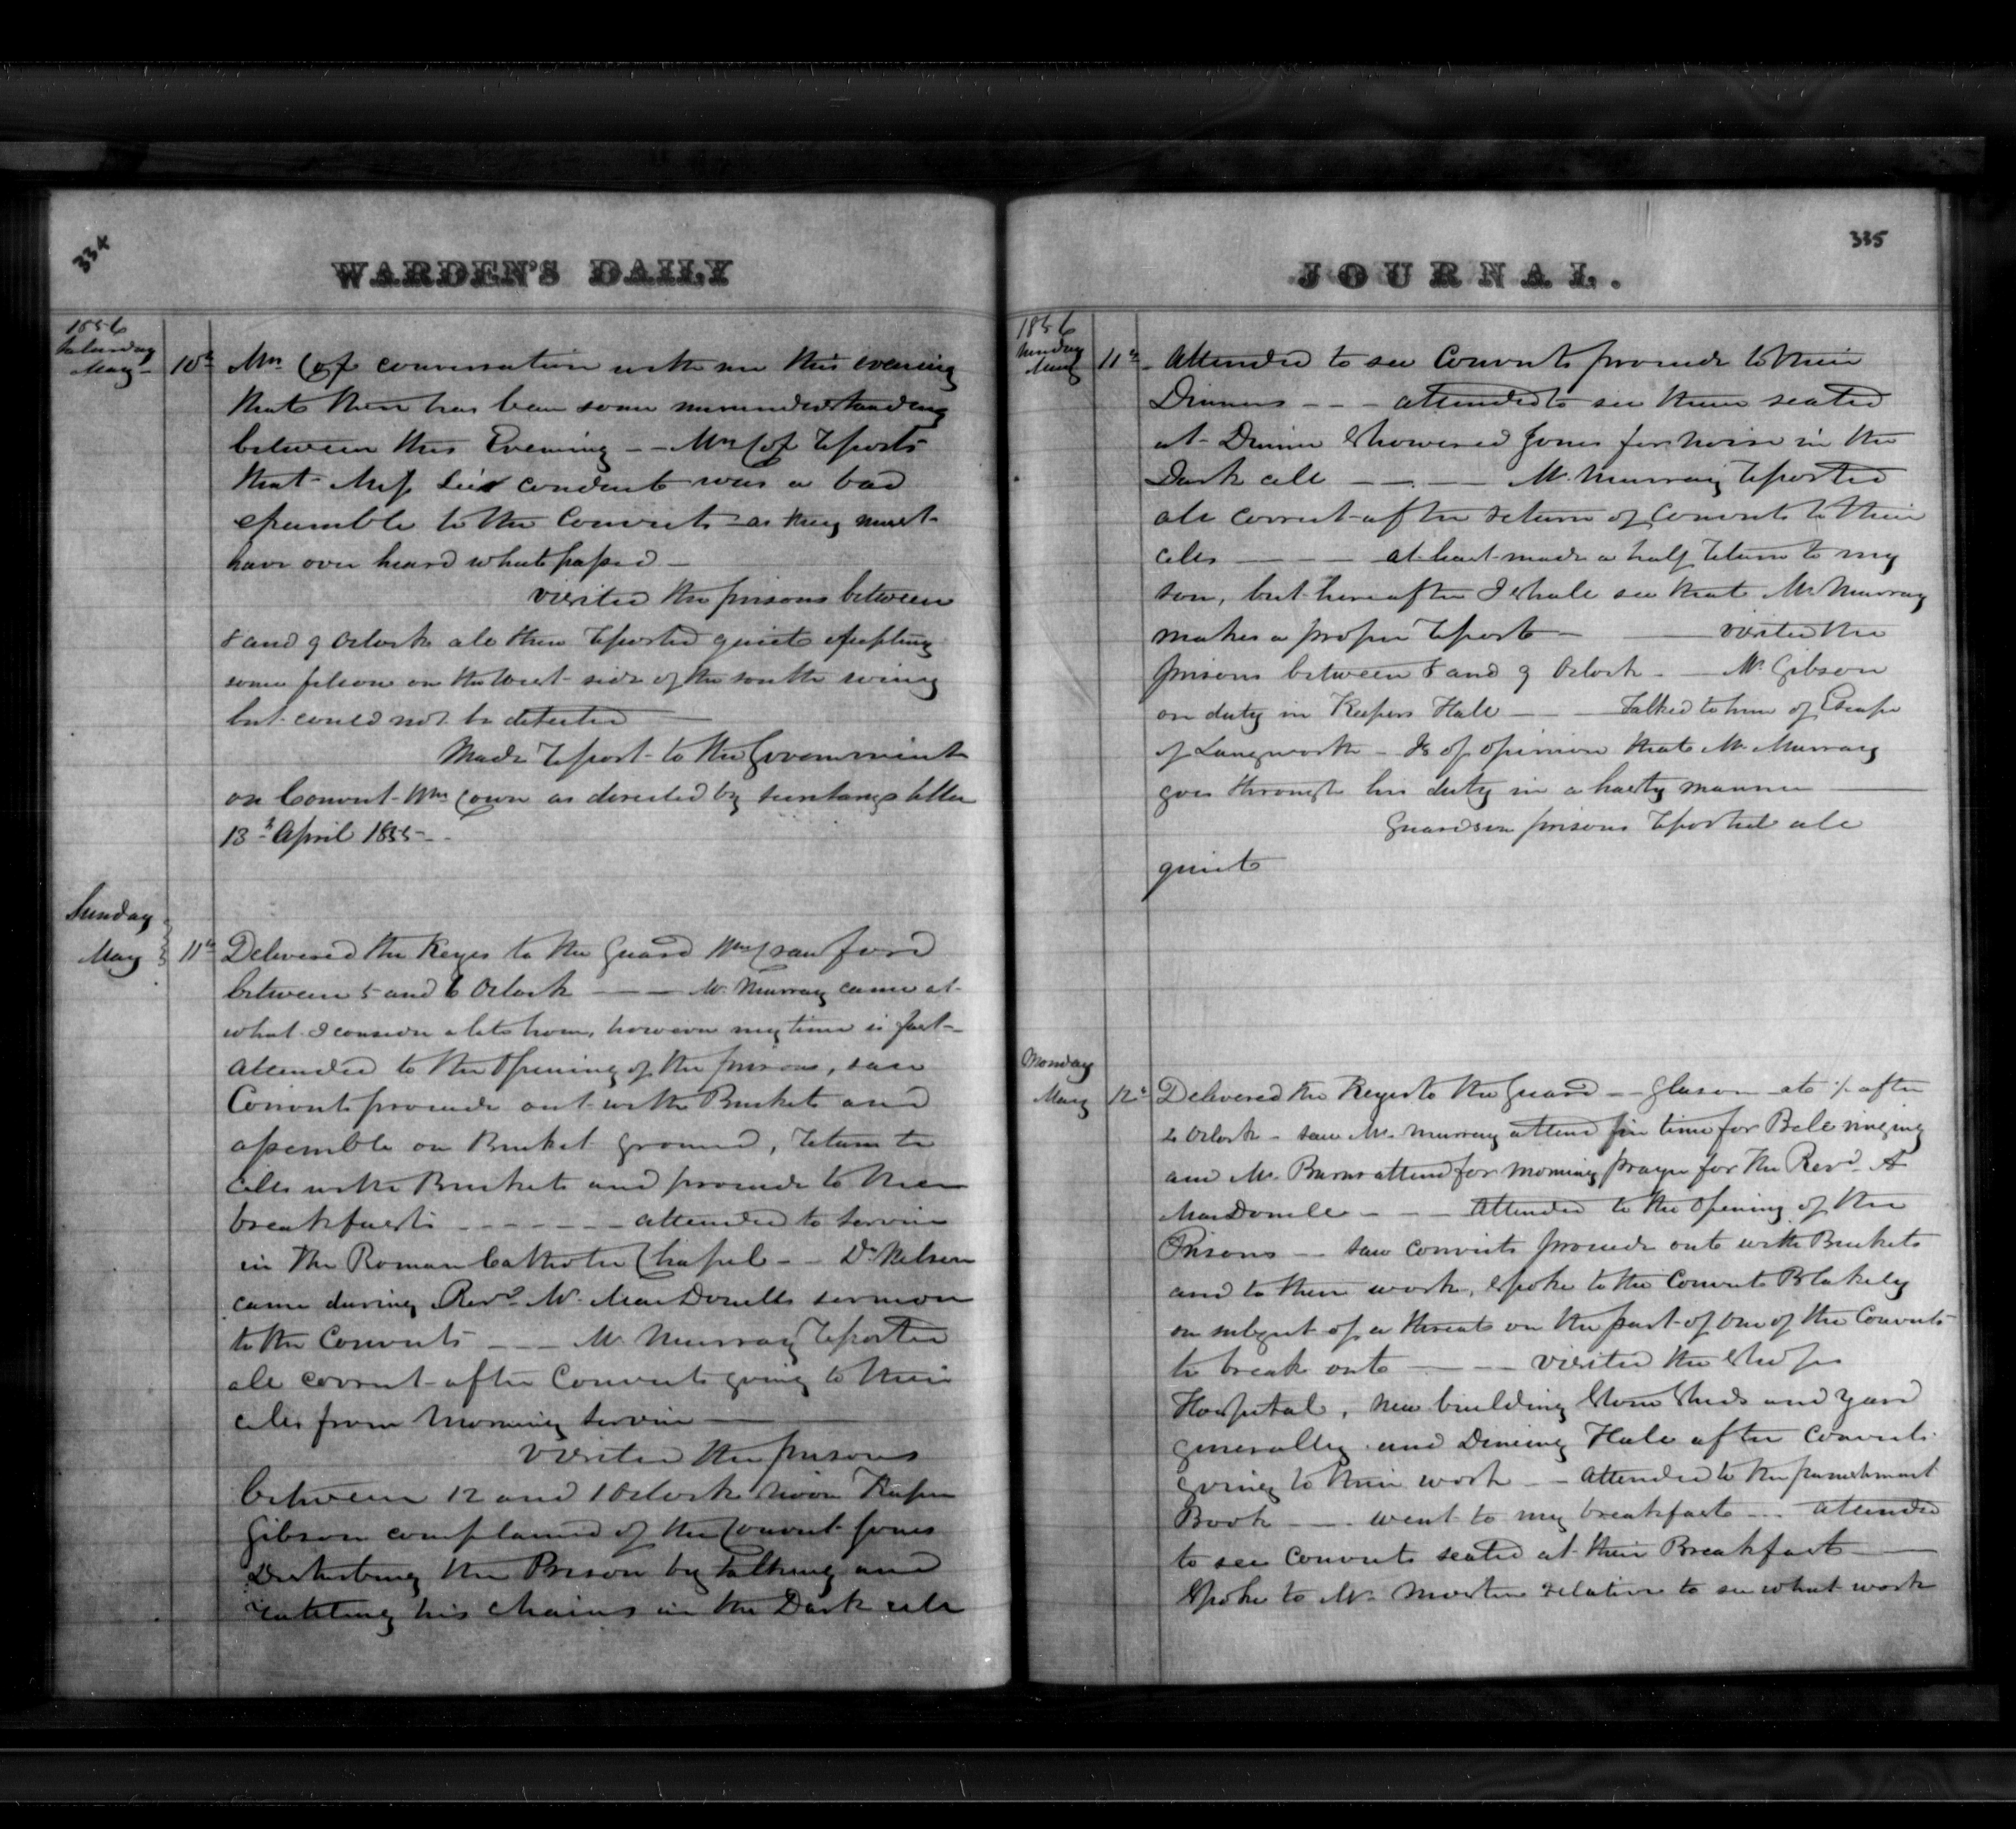 334
WARDEN'S DAILY
1856
Saturday
May 10th Mrs Cox conversation with me this evening
that there has been some misunderstanding
between this Evening -- Mrs Cox reports
that Miss conduct was a bad
example to the Convicts as they must
have over heard what passed -
visited the prisons between
8 and 9 Oclock all then reported quiet excepting
some felons on the West side of the south wing
but could not be detected
Made report to the Government
on Convict Wm as directed by letter
13th April 1855 --
Sunday
May 11th Delivered the Keyes to the Guard Wm Crawford
between 5 and 6 Oclock --- Mr. Murray came at
what I consider a late hour, however my time is fast -
Attended to the Opening of the prisons, saw
Convicts proceede out with Buckets and
assemble on Bucket ground, return to
cells with Buckets and proceede to their
breakfasts ------ attended to service
in The Roman Catholic Chapel -- Dr. Nelson
came during Revd. Mr. MacDonells sermon
to the Convicts --- Mr Murray reported
all correct after Convicts going to their
cells from morning service
visited the prisons
between 12 and 1 Oclock noon Keeper
Gibson complained of the Convict Jones
Disturbing the Prison by talking and
rattling his chains in the Dark cell
JOURNAL.
335
1856
Sunday
May 11th Attended to see Convicts proceede to their
Dinners --- attended to see them seated
at Dinner Showered Jones for noise in the
Dark cell --- Mr. Murray reported
all correct after return of Convicts to their
cells --- at least made a half return to my
son, but hereafter I shall see that Mr. Murray
makes a proper report - visited the
prisons between 8 and 9 Oclock - Mr Gibson
on duty in Keepers Hall -- Talked to him of Escape
of Langworth - Is of opinion that Mr. Murray
goes through his duty in a hasty manner
Guards on prisons reported all
quiet
Monday
May 12th Delivered the Keyes to the Guard -- Gleason at after
Oclock - saw Mr. Murray attend in time for Bell ringing
and Mr. Burns attend for Morning prayer for The Revd. A
MacDonell --- Attended to the Opening of the
Prisons -- saw convicts proceede out with Buckets
and to their work, Spoke to the Convict Blakely
on subject of a threat on the part of one of the Convicts
to break out --- visited the Shops
Hospital, new building Stone Sheds and yard
generally and Dining Hall after convicts
going to their work -- Attended to the punishment
Book --- went to my breakfast --- attended
to see Convicts seated at their Breakfast
Spoke to Mr. relative to see what work